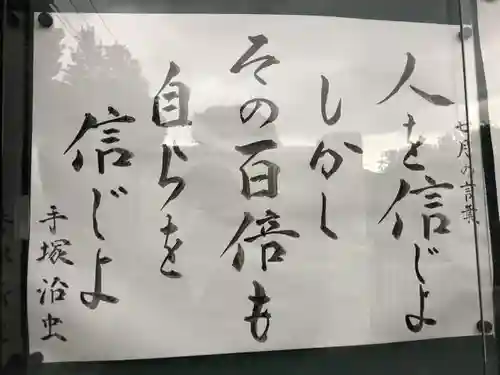 七月の言葉
人を信じよ
しかし
その百倍も
自らを
信じよ
手塚治虫